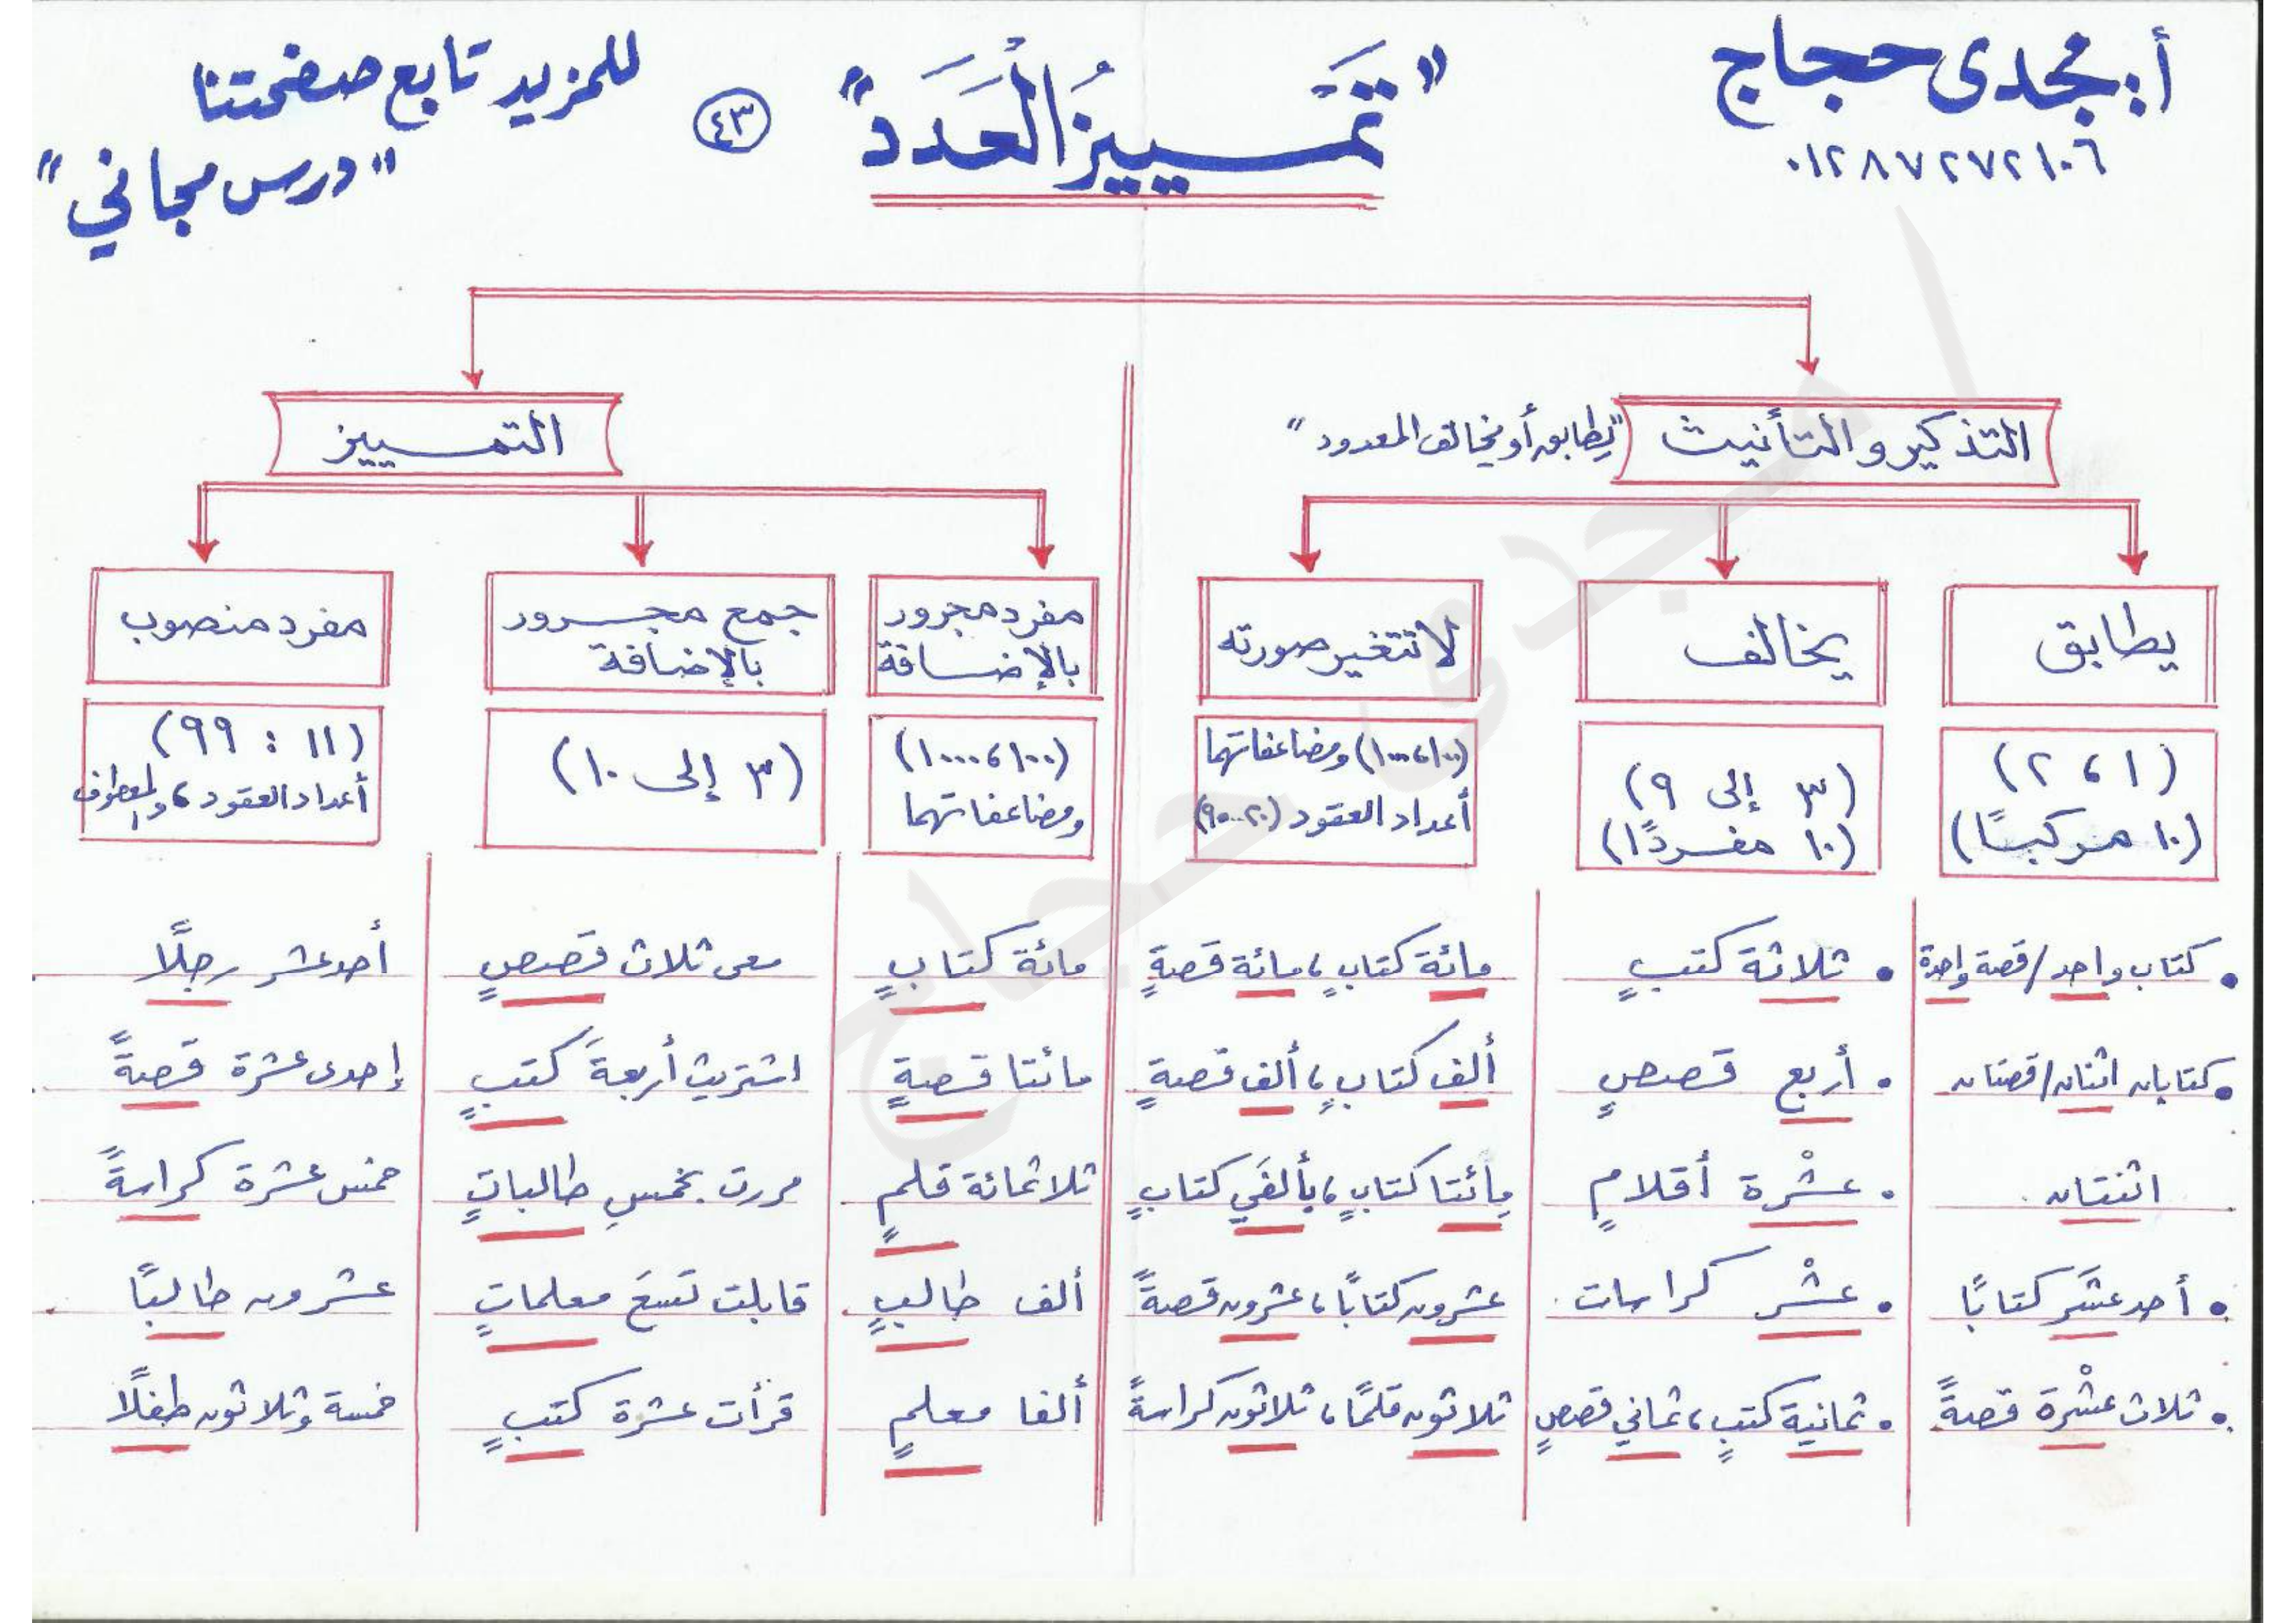 أ: مجدى حجاج
٠١٢٨٧٢٧٢١٠٦
"تَمْسييزُ الْعَدَد"
٤٣
للمزيد تابع صفحتنا
"درس مجاني"
التذكير والتأنيث
"يطابق أو يخالف المعدود"
التمسييز
يطابق
يخالف
لا تتغير صورته
مفرد مجرور
بالإضافة
جمع مجرور
بالإضافة
مفرد منصوب
(١ ، ٢)
(١٠ مركبًا)
(٣ إلى ٩)
(١٠ مفردًا)
(١٠٠، ١٠٠٠) ومضاعفاتهما
أعداد العقود (٢٠..٩٠)
(١٠٠ ، ١٠٠٠)
ومضاعفاتهما
(٣ إلى ١٠)
(١١ : ٩٩)
أعداد العقود ، والمعطوف
• كتاب واحد/قصة واحدة
• كتابان اثنان/قصتان
اثنتان.
• أحد عشَر كتابًا
• ثلاث عشْرة قصةً
• ثلاثة كتبٍ
• أربع قصصٍ
• عشْرة أقلامٍ
• عشْر كراسات
• ثمانية كتبٍ ، ثماني قصصٍ
مائة كتابٍ ، مائة قصةٍ
ألف كتابٍ ، ألف قصةٍ
مائتا كتابٍ ، بألفَي كتابٍ
عشرون كتابًا ، عشرون قصةً
ثلاثون قلمًا ، ثلاثون كراسةً
مائة كتابٍ
مائتا قصةٍ
ثلاثمائة قلمٍ
ألف طالبٍ
ألفا معلمٍ
معى ثلاث قصصٍ
اشتريت أربعةَ كتبٍ
مررت بخمسِ طالباتٍ
قابلت تسعَ معلماتٍ
قرأت عشرة كتبٍ
أحد عشر رجلًا
إحدى عشرة قصةً
خمس عشرة كراسةً
عشرون طالبًا
خمسة وثلاثون طفلًا
أ/ مجدى حجاج